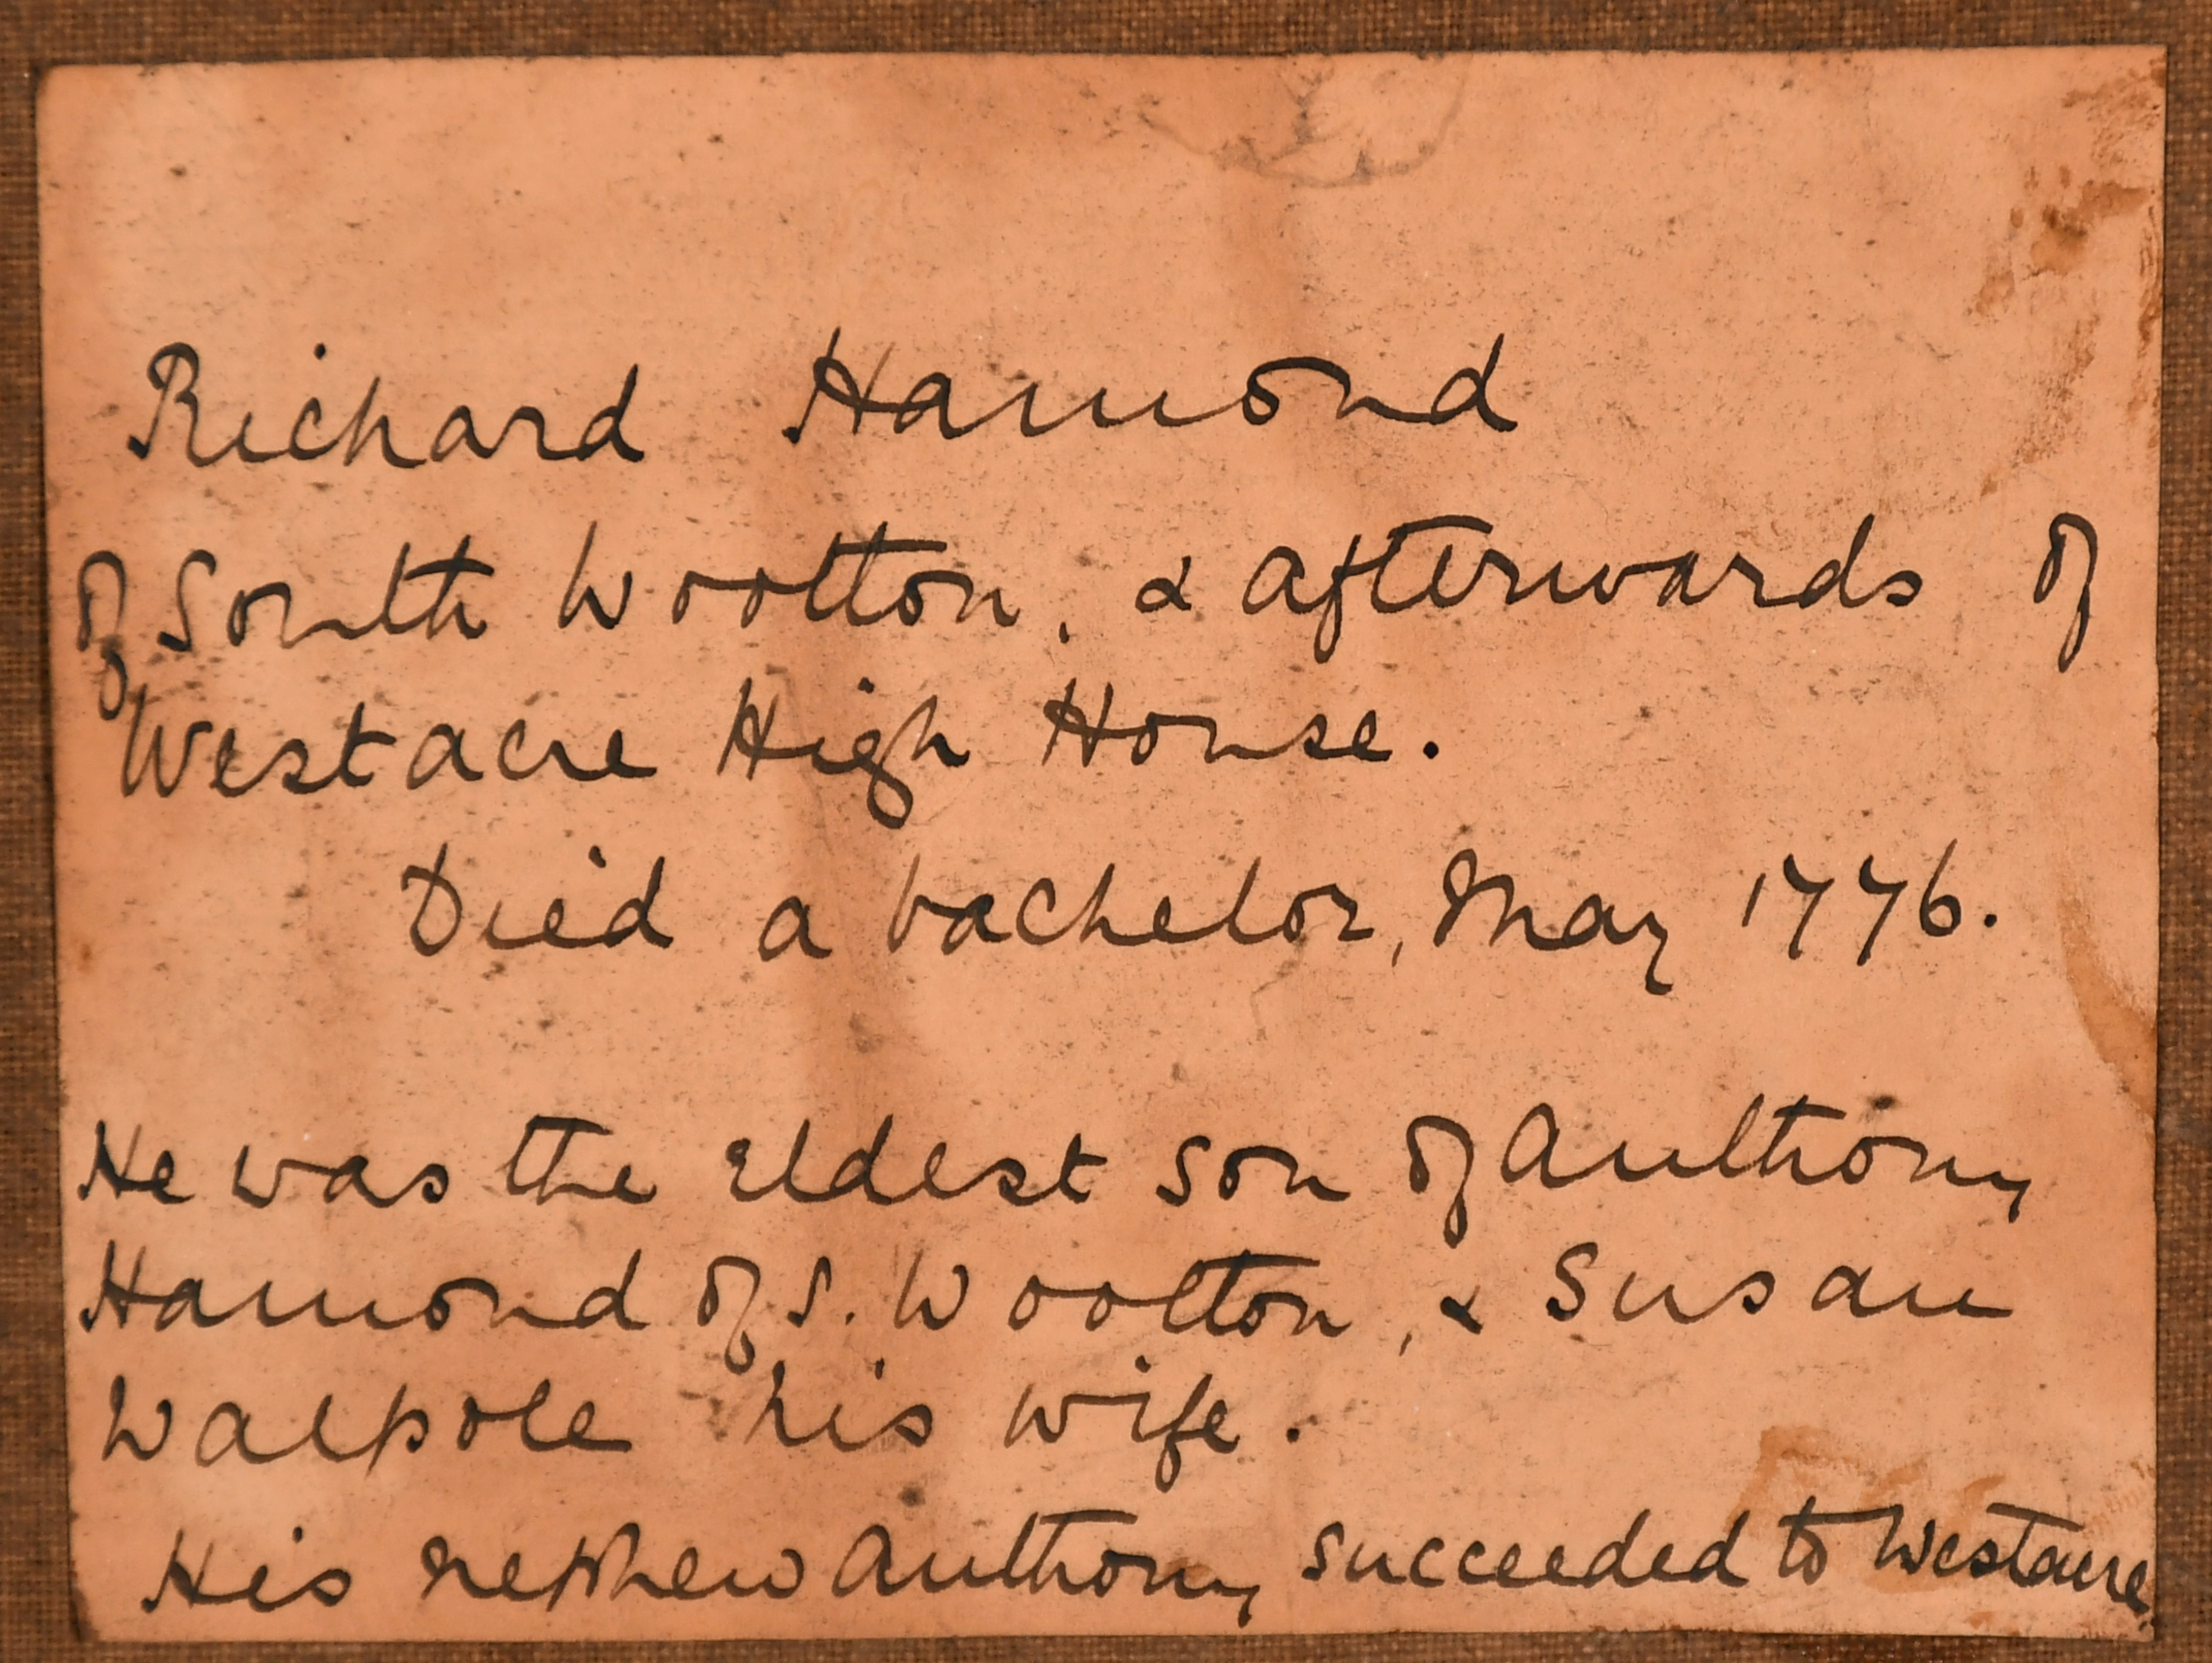 Richard Hamond
of South Wootton, & afterwards of
Westacre High House.
Died a bachelor, May 1776.
He was the eldest son of Anthony
Hamond of S. Wootton, & Susan
Walpole his wife.
His nephew Anthony succeeded to Westacre.